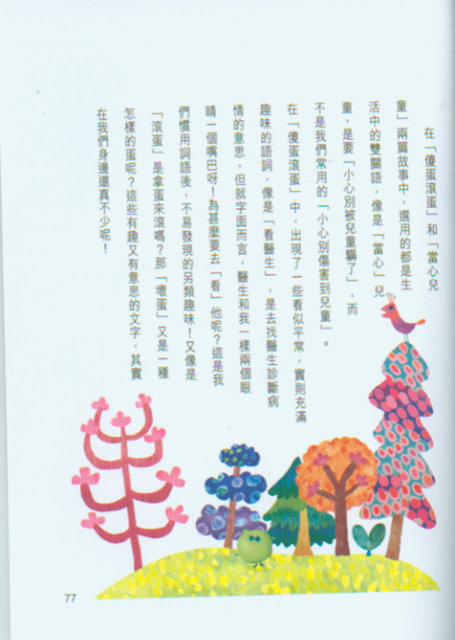 在「傻蛋滾蛋」和「當心兒
童」兩篇故事中，選用的都是生
活中的雙關語，像是「當心」兒
童，是要「小心別被兒童騙了」，而
不是我們常用的「小心別傷害到兒童」。
在「傻蛋滾蛋」中，出現了一些看似平常，實則充滿
趣味的語詞，像是「看醫生」，是去找醫生診斷病
情的意思，但就字面而言，醫生和我一樣兩個眼
睛一個嘴巴呀！為甚麼要去「看」他呢？這是我
們慣用詞語後，不易發現的另類趣味！又像是
「滾蛋」是拿蛋來滾嗎？那「壞蛋」又是一種
怎樣的蛋呢？這些有趣又有意思的文字，其實
在我們身邊還真不少呢！
77